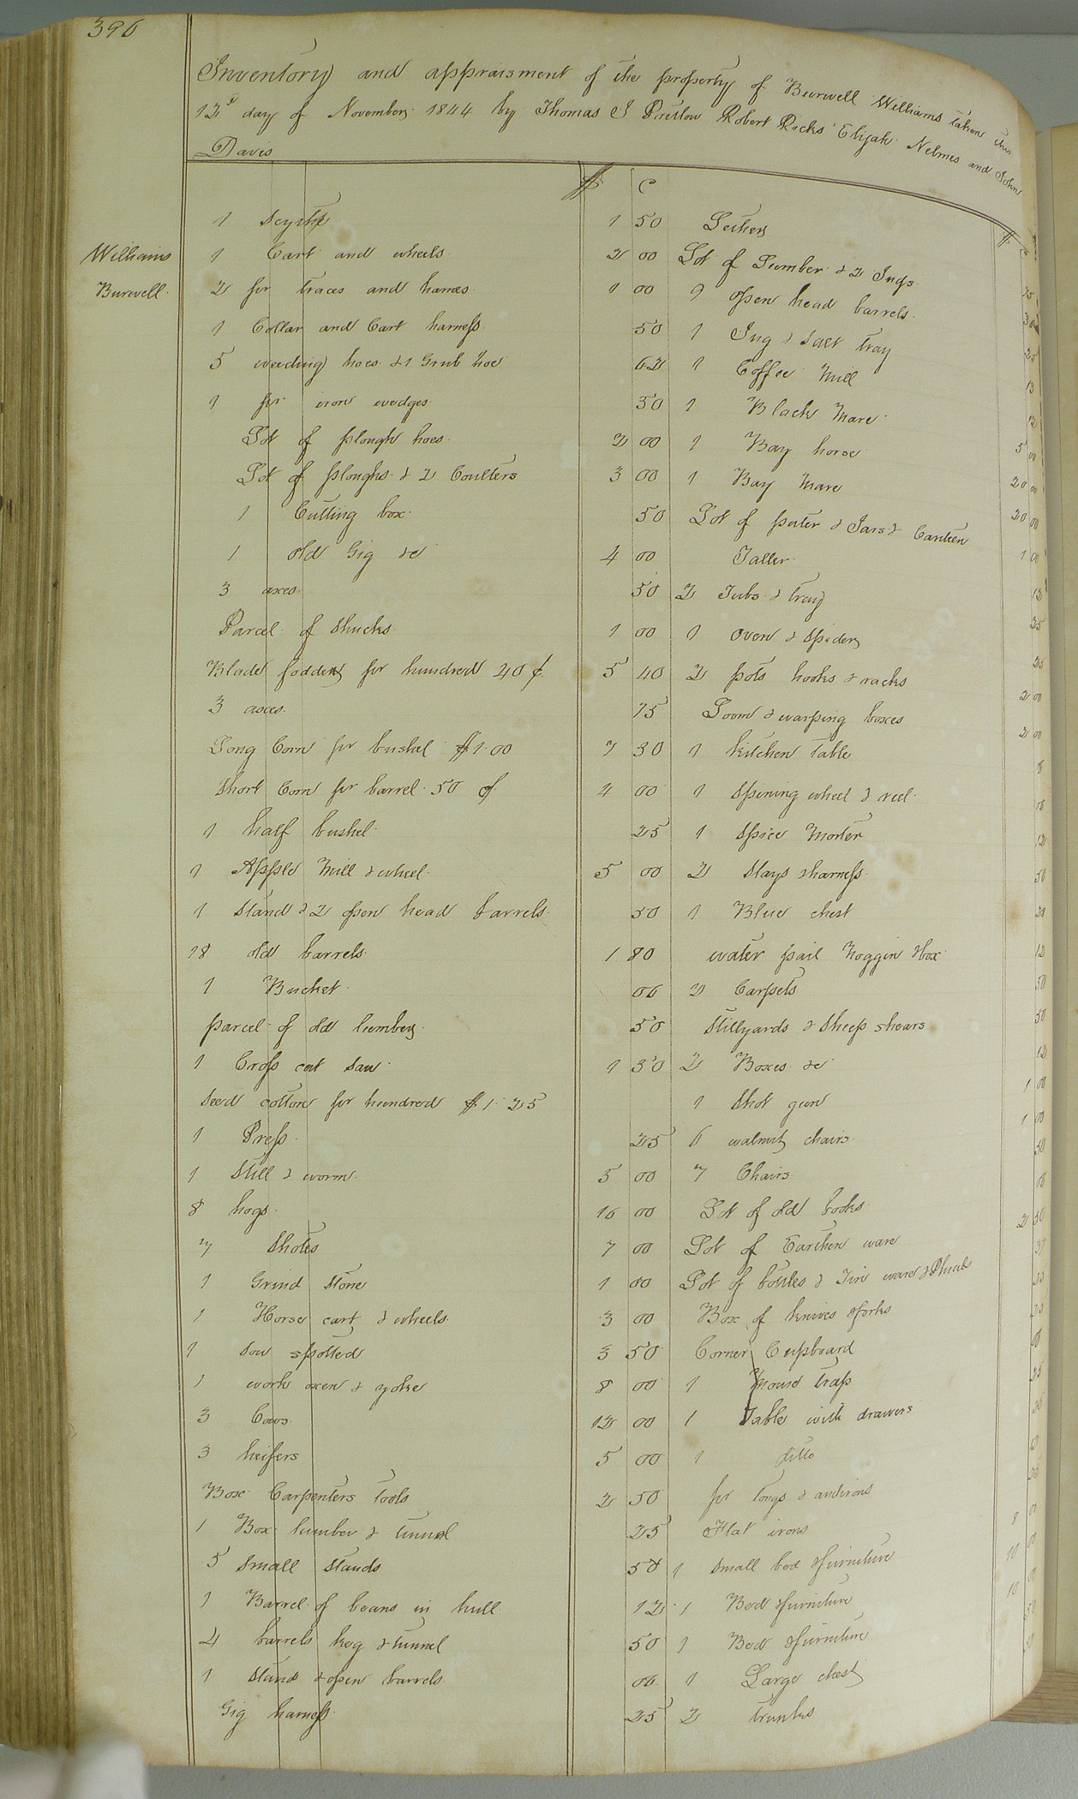 396
Inventory and appraisment of the property of Burwell Williams taken this
12th day of November 1844 by Thomas J Pretlow Robert Ricks Elijah Nelmes and John
Davis
Williams
Burwell
$ C
1 Scythe 1 50
1 Cart and wheels 2 00
2 pr traces and hames 1 00
1 Collar and Cart harness 50
5 weeding hoes & 1 Grub hoe 62
1 pr iron wedges 50
Lot of plough hoes 2 00
Lot of ploughs & 2 Coulters 3 00
1 Cutting box 50
1 old Gig &c 4 00
3 axes 50
Parcel of Shucks 1 00
Blade fodder pr hundred 40 ¢ 5 40
3 axes 75
Long Corn pr bushel $1.00 7 30
Short Corn pr barrel 50 ¢ 4 00
1 half bushel 25
1 Apple Mill & wheel 5 00
1 Stand & 2 open head barrels 50
18 old barrels 1 80
1 Bucket 06
parcel of old lumber 50
1 Cross cut saw 1 30
Seed cotton pr hundred $1.25
1 Press 25
1 Still & worm 5 00
8 hogs 16 00
7 Shotes 7 00
1 Grind Stone 1 00
1 Horse cart & wheels 3 00
1 Sow spotted 3 50
1 work oxen & yoke 8 00
3 Cows 12 00
3 heifers 5 00
Box Carpenters Tools 2 50
1 Box lumber & tunnel 25
5 Small Stands 50
1 Barrel of beans in hull 12
4 barrels keg & tunnel 50
1 Stand & open barrels 06
Gig harness 25
$
Lot of Lumber & 2 Jugs
9 open head barrels
1 Jug & Salt tray
1 Coffee Mill
1 Black Mare
1 Bay horse
1 Bay Mare
Lot of & Jars & Canteen
2 Tubs & tray
1 Oven & Spider
2 pots hooks & racks
Loom & warping boxes
1 kitchen table
1 Spining wheel & reel
1 Spice Morter
2 Slays & harness
1 Blue chest
water pail Noggin & box
2 Carpets
Stillyards & Sheep shears
2 Boxes &c
1 Shot gun
6 walnut chairs
7 Chairs
Lot of old books
Lot of Earthen ware
Lot of bottles & Tin ware &
Box of knives & forks
Corner Cupboard
1 Mouse trap
1 Table with drawers
1 ditto
pr Tongs & andirons
Flat irons
1 Small bed & furniture
1 Bed & furniture
1 Bed & furniture
1 Large chest
2 trunks